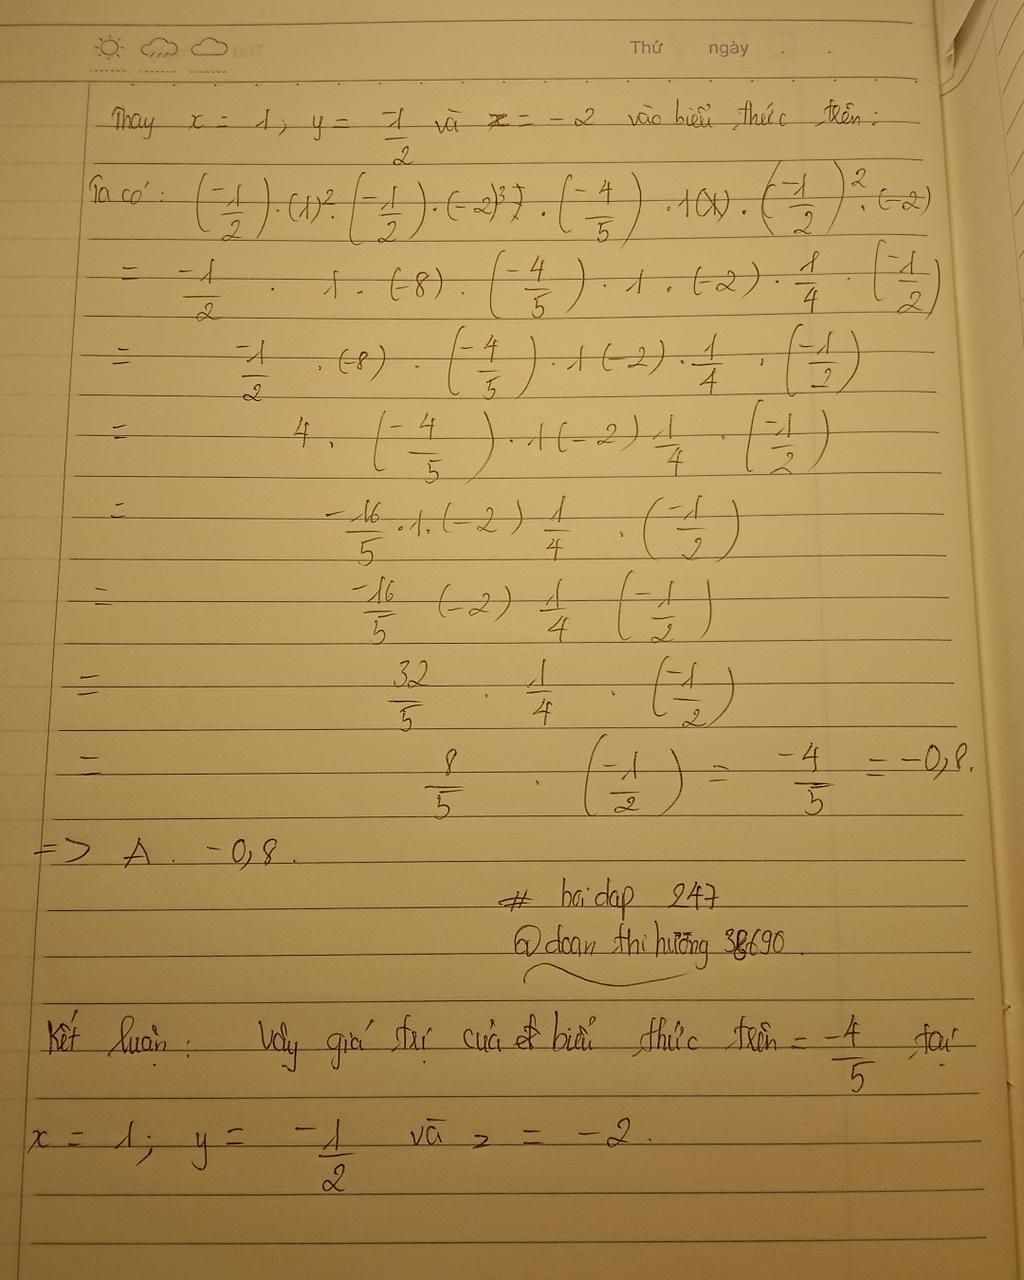 Thứ ngày
Thay x = 1; y = -1/2 và z = -2 vào biểu thức trên:
Ta có: (-1/2) . (1)² . (-1/2) . (-2)³ . (-4/5) . 1 . (-1/2)² . (-2)
= -1/2 . 1 . (-8) . (-4/5) . 1 . (-2) . 1/4 . (-1/2)
= -1/2 . (-8) . (-4/5) . 1 (-2) . 1/4 . (-1/2)
= 4 . (-4/5) . 1 (-2) 1/4 . (-1/2)
= -16/5 . 1 . (-2) 1/4 . (-1/2)
= -16/5 (-2) 1/4 (-1/2)
= 32/5 . 1/4 . (-1/2)
= 8/5 . (-1/2) = -4/5 = -0,8.
=> A . -0,8.
# hoidap 247
@doan thi hương 38690.
Kết luận: Vậy giá trị của biểu thức trên = -4/5 tại
x = 1; y = -1/2 và z = -2.